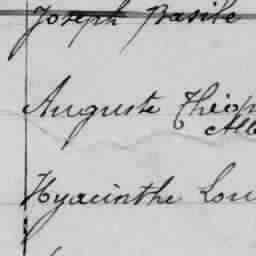 Joseph Basile
Auguste Théop
Alb
Hyacinthe Lou